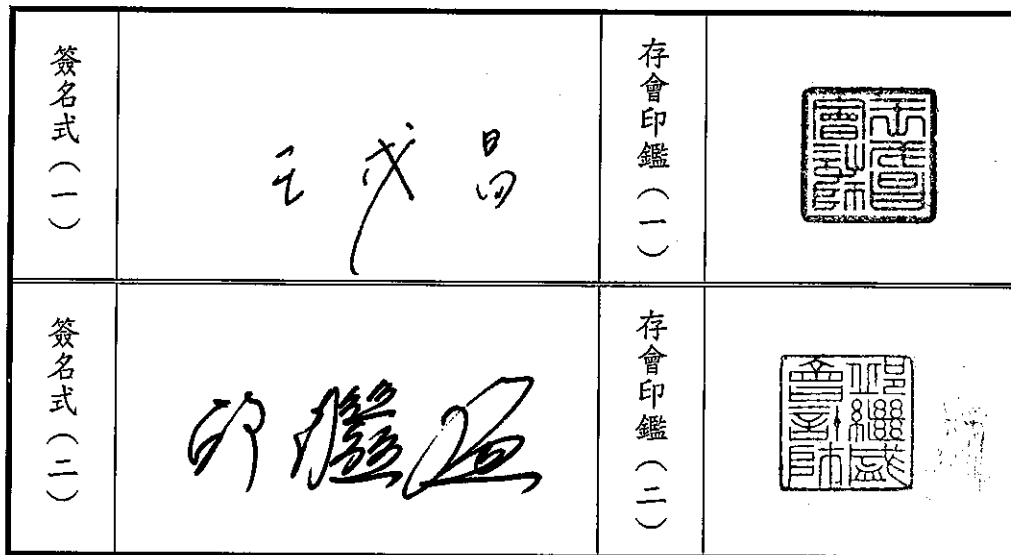 簽名式(一)
王戊昌
存會印鑑(一)
王戊昌會計師
簽名式(二)
邱繼盛
存會印鑑(二)
邱繼盛會計師